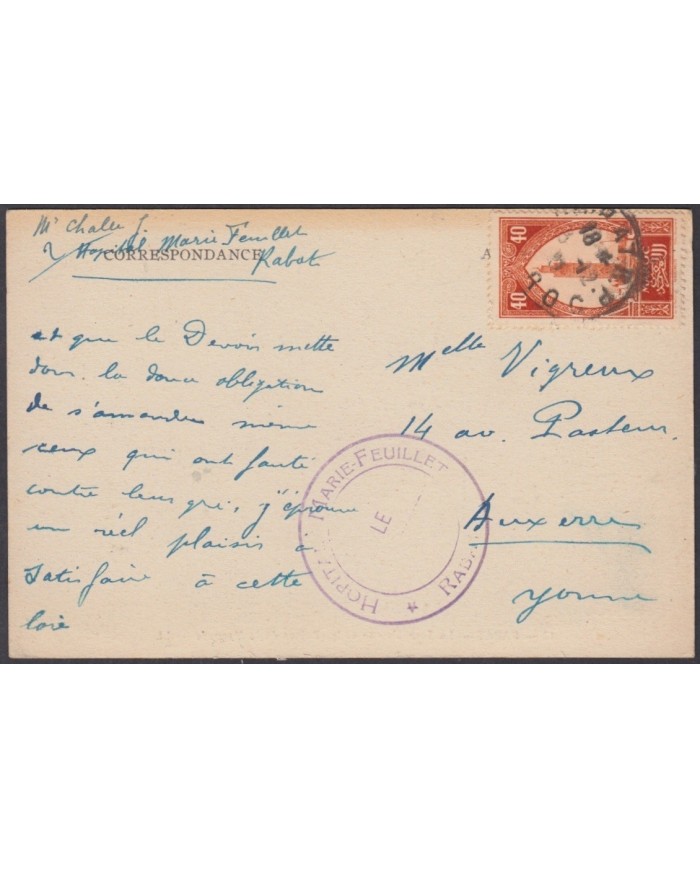 Mr Challe J.
Hopital Marie Feuillet
CORRESPONDANCE
Rabat
A
40
40
18
R.P.
et que le Devoir mette
dans la douce obligation
de s'amender même
ceux qui ont fauté
contre leur gré, j'éprouve
un réel plaisir à
satisfaire à cette
loi
Melle Vigreux
14 av. Pasteur
Auxerre
Yonne
HOPITAL MARIE-FEUILLET
LE
RABA